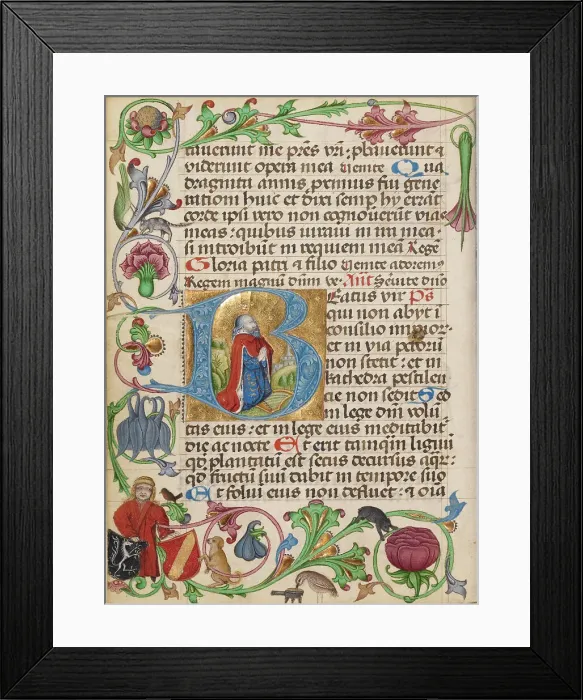 tauerunt me p̄res vr̄i : p̄bauerunt &
viderunt opera mea venite Qua
draginta annis p̄ximus fui gene
rationi huic et dixi semp hy errāt
corde ipsi vero non cognouerūt vias
meas : quibus iuraui in ira mea
si introibūt in requiem meā Rege
Gloria patri & filio venite adorem⁹
Regem magnū dn̄m ve. Ant Seruite dn̄o
Beatus vir Ps
qui non abijt ī
consilio impior̄
et in via pctorū
non stetit : et in
kathedra pestilen
cie non sedit Sed
in lege dn̄i volūtas
tas eius : et in lege eius meditabit̄
die ac nocte Et erit tamq̄m lignū
qd̄ plantatū est secus decursus aq̄r̄ :
qd̄ fructū suū dabit in tempore suo
Et foliū eius non defluet : & oīa